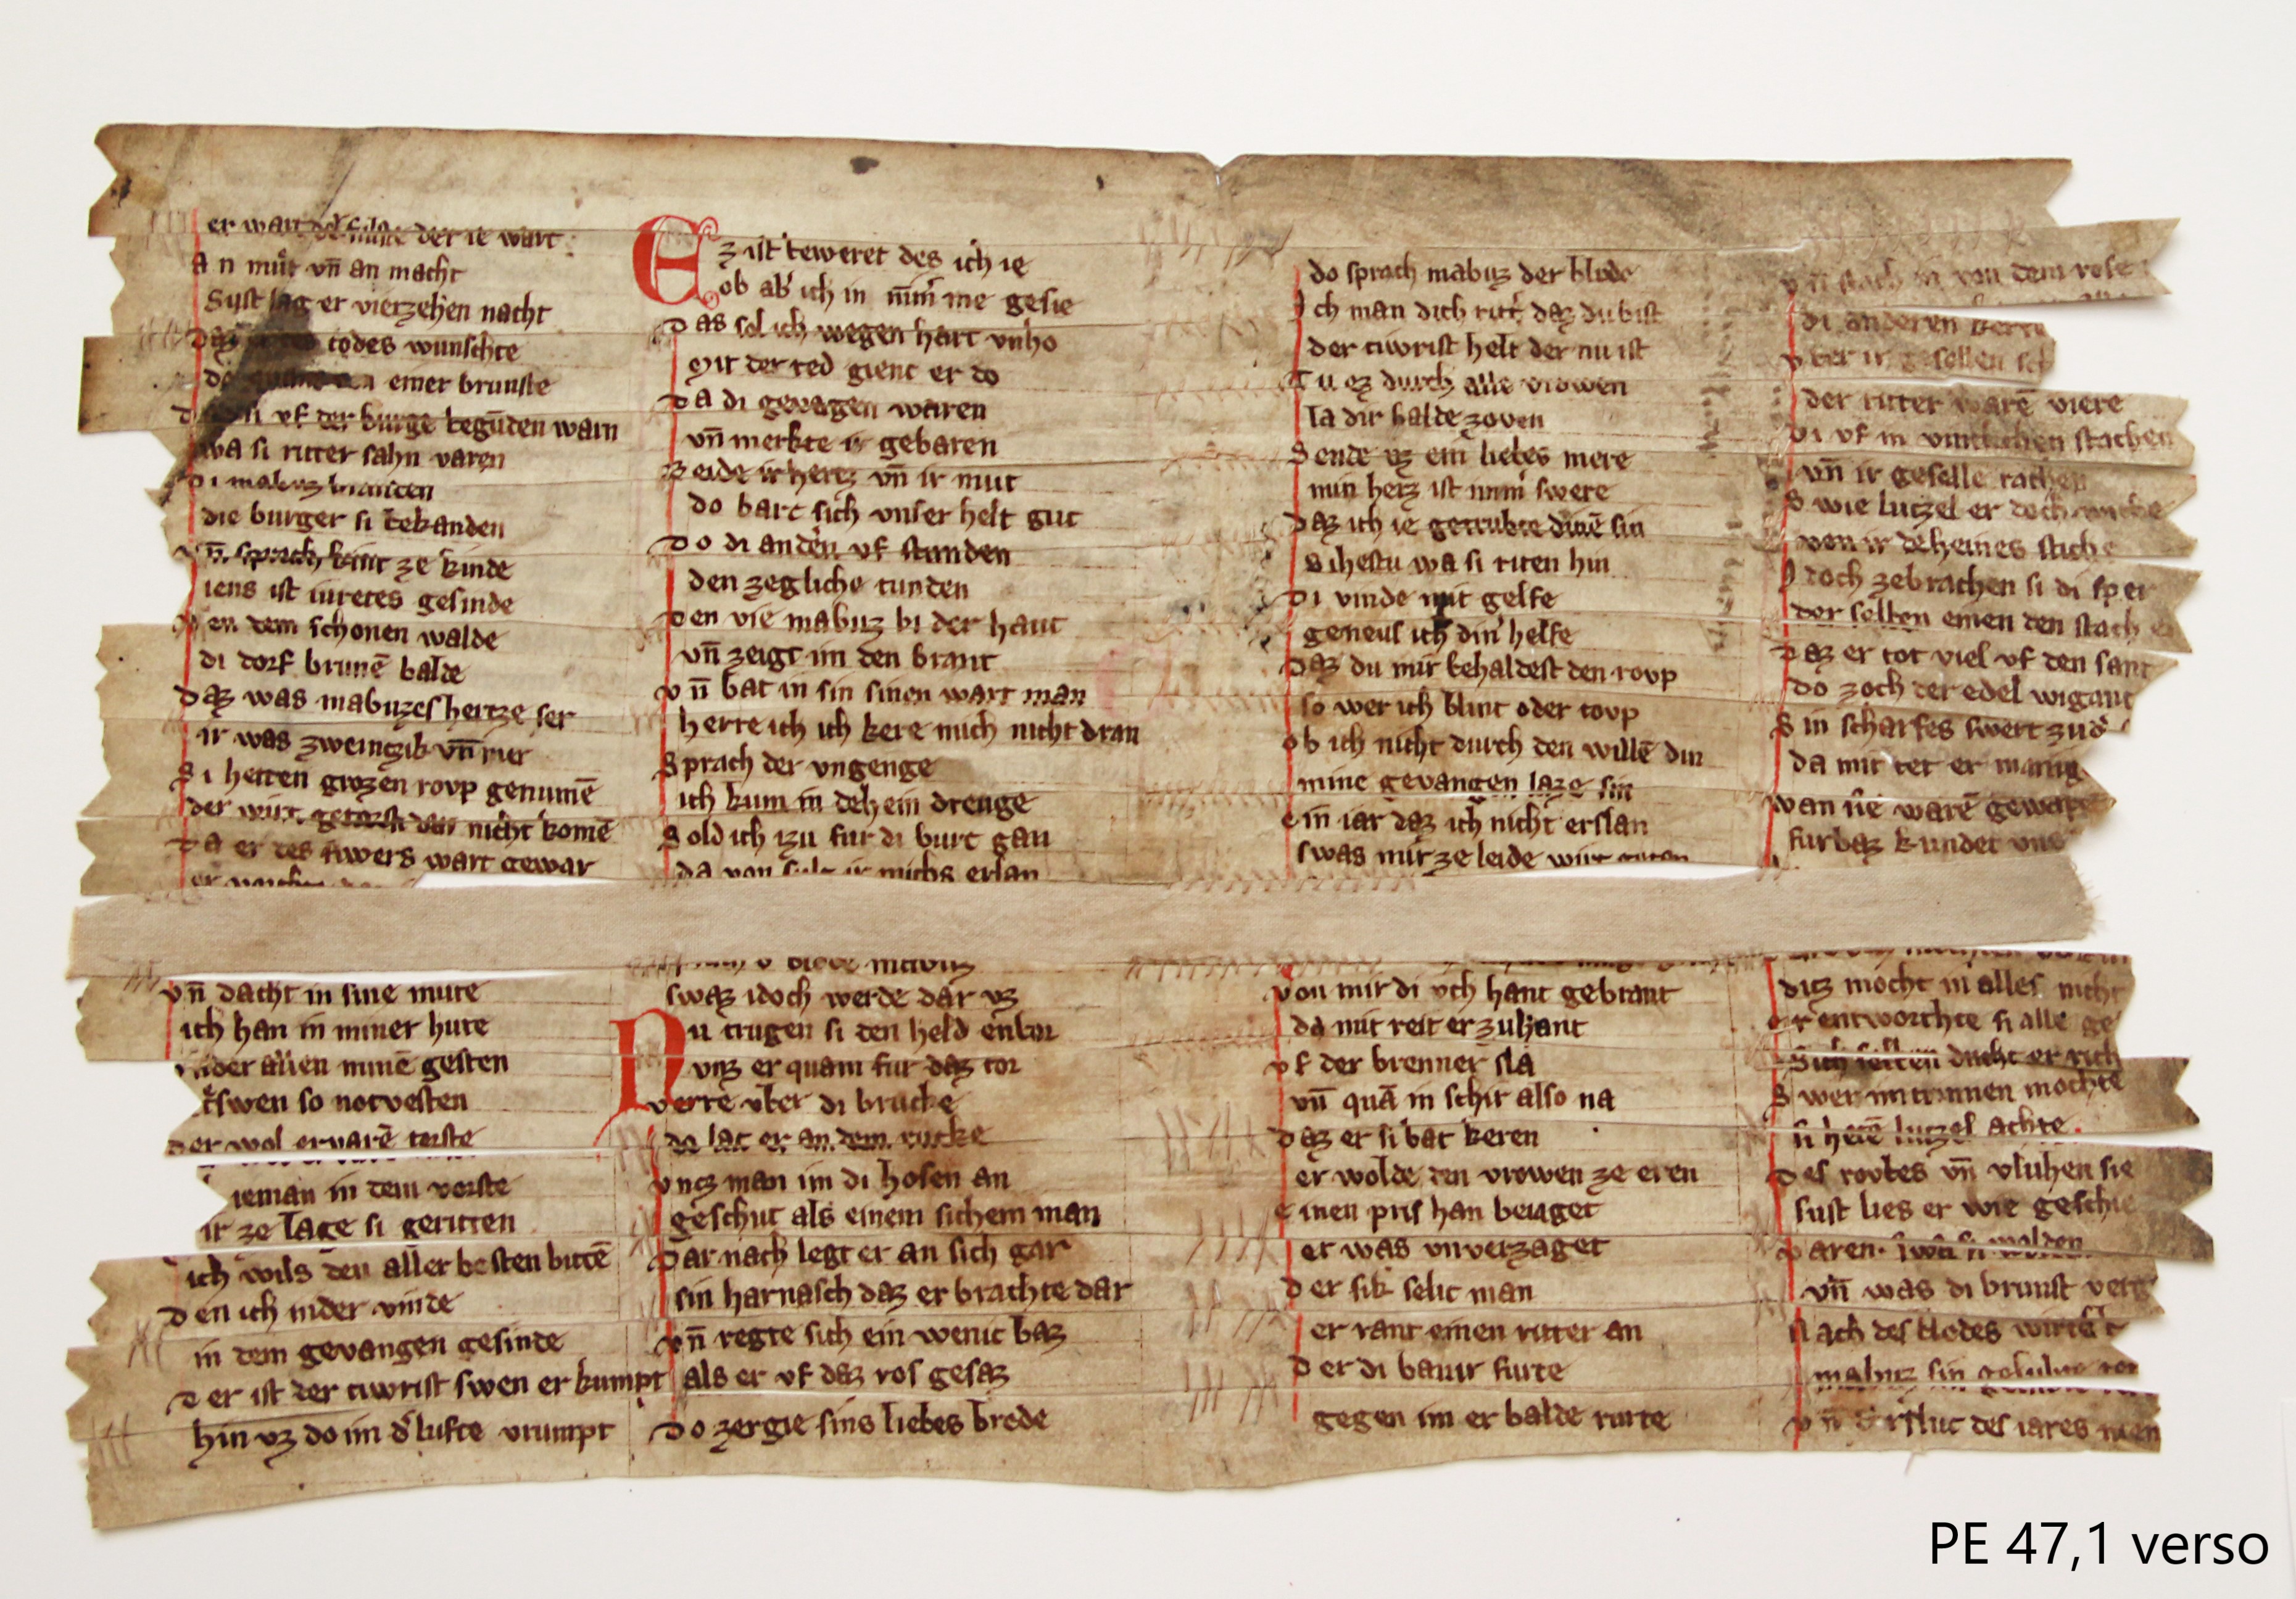 er wart der
A n mut vn̄ an macht
Sust lag er vierzehen nacht
todes wunschte
einer brunste
vf der burge begūden warn
wa si ritter sahn varen
di mabuz branden
die burger si bekanden
vn̄ sprach kint ze kinde
iens ist iuretes gesinde
en dem schonen walde
di dorf brunē balde
daz was mabuzes hertze ser
ir was zweintzik vn̄ vier
S i heten grozen rovp genumē
der wirt nicht komē
D a er des fiwers wart gewar
vn̄ dacht in sine mute
ich han in miner hute
nider allen minē gesten
swen so notvesten
der wol ervarē torste
ieman in dem vorste
ir ze lage si geritten
ich wils den aller besten bitē
D en ich inder vinde
in dem gevangen gesinde
D er ist der tiwrist swen er kumpt
hin vz do im d' lufte vrumpt
E z ist teweret des ich ie
ob ab' ich in nīm' me gesie
D as sol ich wegen hart vnho
Mit der red gienc er do
D a di gevagen waren
vn̄ merkte ir gebaren
B eide ir hertz vn̄ ir mut
do barc sich vnser helt gut
D o di anden vf stunden
den zegliche tunden
D en vie mabuz bi der hant
vn̄ zeigt im den brant
v n̄ bat in sin sinen wart man
herre ich ich kere mich nicht dran
S prach der vngenge
ich kum in dehein drenge
S old ich izu fur di burc gan
da von sult ir michs erlan
swaz idoch werde dar vz
N u trugen si den held enbor
vnz er quam fur daz tor
verre vber di brucke
do lac er an dem rucke
v ncz man im di hosen an
geschut als einem sichem man
D ar nach legt er an sich gar
sin harnasch daz er brachte dar
v n̄ regte sich ein wenic baz
als er vf daz ros gesaz
D o zergie sins liebes brode
do sprach mabuz der blode
I ch man dich ritt' daz du bist
der tiwrist helt der nu ist
T u ez durch alle vrowen
la dir balde zoven
S ende vz ein liebes mere
min herz ist nim' swere
D az ich ie getrubte dinē sin
sihestu wa si riten hin
D i vinde mit gelfe
geneus ich din' helfe
D az du mir behaldest den rovp
so wer ich blint oder tovp
O b ich nicht durch den willē din
mine gevangen laze sin
E in iar daz ich nicht erslan
swas mir ze leide wirt getan
v on mir di vch hant gebrant
da mit reit er zuhant
v f der brenner sla
vn̄ quā in schir also na
D az er si bat keren
er wolde den vrowen ze eren
E inen pris han beiaget
er was vnverzaget
D er sik selic man
er rant einen ritter an
D er di banir furte
gegen im er balde rurte
v n̄ stach in von dem rosse
di anderen
v ber ir gesellen
der ritter warē viere
D i vf in vintlichen stachen
vn̄ ir geselle rachen
S wie lutzel er doch
von ir deheines stiche
I doch zebrachen si di sper
der selben einen den stach er
D az er tot viel vf den sant
do zoch der edel wigant
S in scharfes swert zu d'
da mit tet er manig
wan sie warē
furbaz kundet vns
ditz mocht in alles nicht
er entworchte si alle ge
ducht er sich
S wer im trinnen mochte
si hetē lutzel achte.
D es rovbes vn̄ vluhen sie
sust lies er wie geschie
v aren. swa si wolden
vn̄ was di brunst
N ach des blodes wirte
mabuz sin gelubde
v n̄ ersluc des iares
PE 47,1 verso